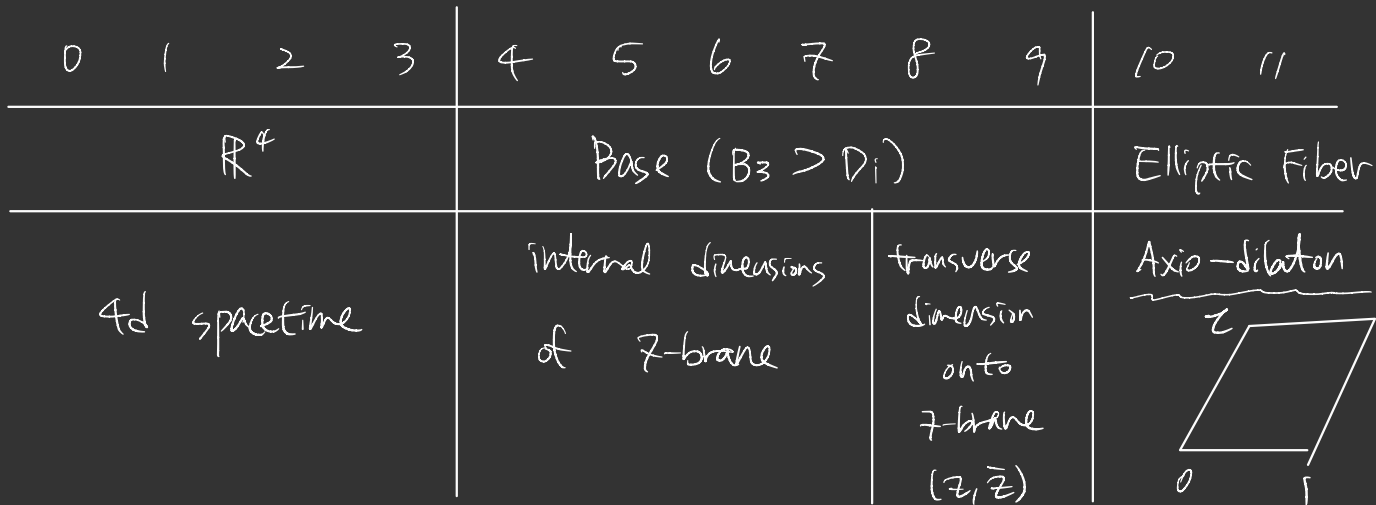 0 1 2 3 4 5 6 7 8 9 10 11
ℝ⁴ Base (B₃ > Dᵢ) Elliptic Fiber
4d spacetime
internal dimensions
of 7-brane
transverse
dimension
onto
7-brane
(z, z̄)
Axio-dilaton
τ
0 1